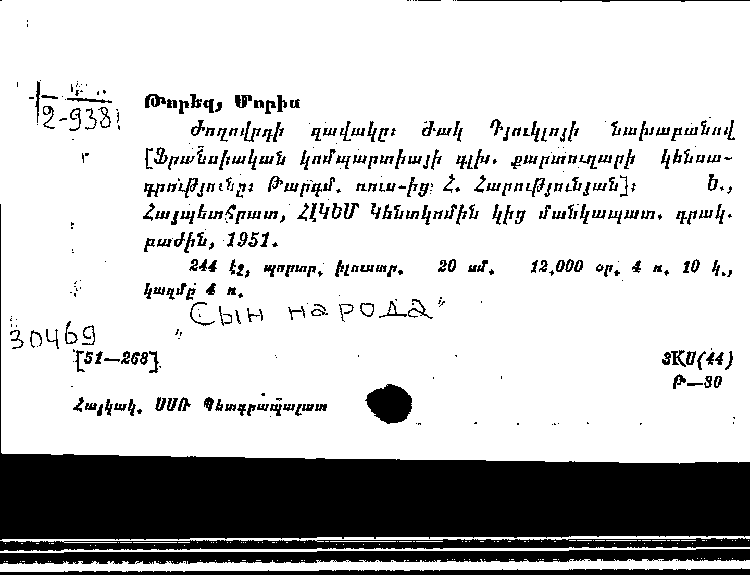 2-938
Թորեզ, Մորիս
Ժողովրդի զավակը: Ժակ Դյուկլոյի նախաբանով
[Ֆրանսիական կոմպարտիայի գլխ. քարտուղարի կենսա-
գրությունը: Թարգմ. ռուս-ից Հ. Հարությունյան]: Ե.,
Հայպետհրատ, ՀԼԿԵՄ Կենտկոմին կից մանկապատ. գրակ.
բաժին, 1951.
244 էջ, պորտր. իլուստր. 20 սմ. 12,000 օր. 4 ռ. 10 կ.,
կազմը 4 ռ.
"Сын народа"
30469
[51—268]
3КЦ(44)
Թ—30
Հայկակ. ՍՍՌ Պետգրապալատ